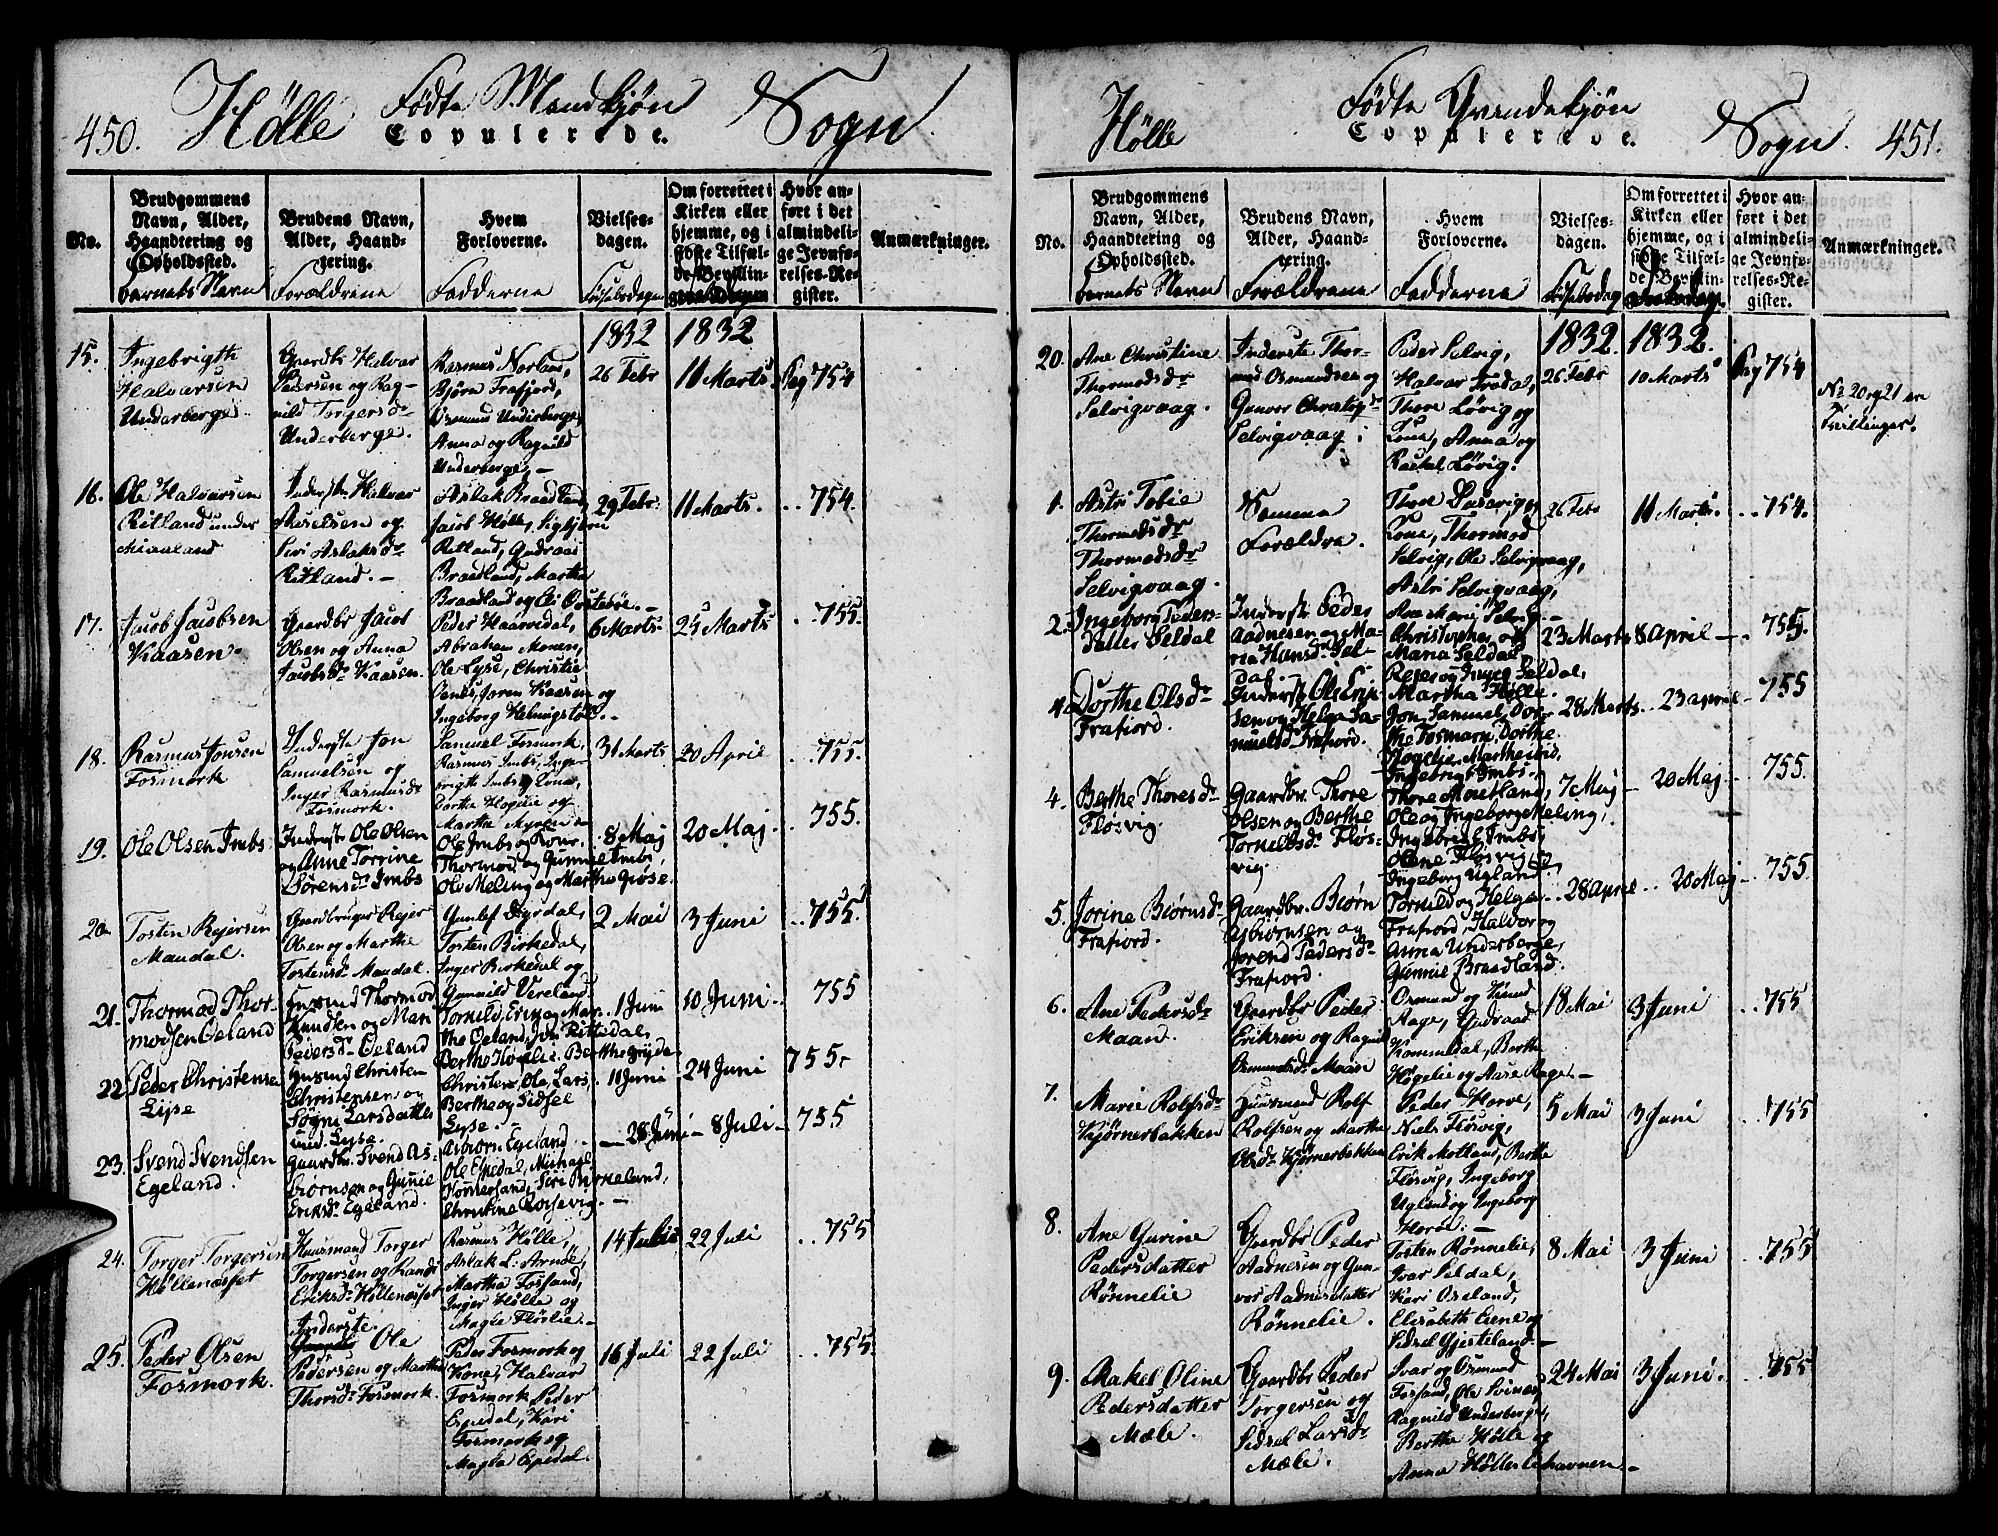 450. Hölle Fødte Mandkjøn Sogn
Copulerede.
No.
Brudgommens Navn, Alder, Haandtering og Opholdssted.
Brudens Navn, Alder, Haandtering.
Hvem Forloverne.
Vielsesdagen.
Om forrettet i Kirken eller hjemme, og i sidste Tilfælde Bevillingens Datum
Hvor anført i det almindelige Jevnførelses-Register.
Anmærkninger.
barnets Navn
Forældrene
Fadderne
Fødselsdagen
1832 1832
15. Ingebrigth
Halvarsen
Underberge
Gaardbr Halvar
Pedersen og Rag-
nild Torgersdr
Underberge.
Rasmus Norland,
Bjørn Frafjord,
Osmund Underberge,
Anna og Ragnild
Underberge, –
26 Febr
11 Marts
Pag 754
16. Ole Halvarsen
Ritland under
Inderst Halvar
Axelsen og
Siri Aslaksdr
Ritland. –
Aslak Braadland,
Jacob Hølle, Sigbjørn
Ritland, Gudraai
Braadland, Martha
Braadland og
29 Febr.
11 Marts.
.. 754.
17. Jacob Jacobsen
Kaasen.
Gaardbr Jacob
Olsen og Anna
Jacobsdr Kaasen.
Peder Haavedal,
Abraham Monen,
Ole Lyse, Christie
Joren Kaasen og
Ingeborg Helmigstøl. –
6 Marts.
25 Marts
.. 755.
18. Rasmus Jonsen
Fosmork
Inderste Jon
Samuelsen og
Inger Rasmusdr
Fosmork.
Samuel Fosmork,
Rasmus Imbs, Inge-
brigth Imbs og Kone,
Dorthe Høgelie og
Martha Myren –
31 Marts
20 April
.. 755.
19. Ole Olsen Imbs
Inderst Ole Olsen
og Anne Torrine
Sörensdr Imbs
Ole Imbs og Kone,
Thormod og Gunnie Imbs,
Ole Meling og Marthe Giøse.
8 Maj
20 Maj
.. 755.
20. Tosten Rejersen
Maudal.
Gaardbruger Rejer
Olsen og Martha
Tostensdr Maudal.
Gunlef Dyrdal,
Tosten Birkedal,
Inger Birkedal og
Gunnild Vereland
2 Mai
3 Juni
.. 755.
21. Thormod Thor-
modsen Eeland
Husmd Thormod
Knudsen og Mari
Pedersdr Eeland
Tornild, Erik og Mar-
the Eeland, Jon Rettedal,
Berthe Høgelie. Berthe
1 Juni
10 Juni
755
22. Peder Christense
Lyse
Husmd Christen
Christensen og
Søgni Larsdatter
und. Lyse.
Christen, Ole, Lars,
Berthe og Sidsel
Lyse. –
11 Juni
24 Juni
755.
23. Svend Svendsen
Egeland.
Gaardbr. Svend As-
biørnsen og Gunie
Eriksdr Egeland.
Asbiørn Egeland,
Ole Espedal, Michael
Kommersand, Siri Birkeland,
Christine Rossevig. –
28 Juni
8 Juli
755
24. Torger Torgersen
Höllenæsset
Huusmand Torger
Torgersen og Randi
Eriksdr Höllenæsset
Rasmus Hölle,
Aslak L: Arnøe,
Martha Fossand,
Inger Hölle og
Magle Flörlie. –
14 Juli
22 Juli
.. 755
25. Peder Olsen
Fosmork.
Inderste.
Ole
Pedersen og Martha
Thorsdr Fosmork.
Peder Fosmork og
Kone, Halvar
Fosmork, Peder
Espedal, Kari
Fosmork og
Magla Espedal.
16 Juli
22 Juli
.. 755.
Hölle Fødte Qvindekjön Sogn. 451.
Copulerede.
No.
Brudgommens Navn, Alder, Haandtering og Opholdssted.
Brudens Navn, Alder, Haandtering.
Hvem Forloverne.
Vielsesdagen.
Om forrettet i Kirken eller hjemme, og i sidste Tilfælde Bevillin-
Hvor anført i det almindelige Jevnførelses-Register.
Anmærkninger.
barnets Navn
Forældrene
Fadderne
Fødselsdag
1832. 1832.
20. Ane Christine
Thormodsdr
Selvigvaag.
Inderste Thor-
mod Osmundsen og
Gunvor Christophdr
Selvigvaag
Peder Selvig,
Halvar Fredal,
Thore Lövig og
Kone, Anna og
Rachel Lövig.
26 Febr
10 Marts
Pag 754
No 20 og 21 ere
Tvillinger.
1. Astri Tobie
Thormodsdr
Thormodsdr
Selvigvaag.
Samme
Forældre.
Thore Dusavig og
Kone, Thormod
Selvig, Ole Selvigvaag,
Astri Selvigvaag,
Ane Marie Selvig. –
26 Febr
11 Marts.
.. 754.
2. Ingeborg Peders-
datter Seldal
Inderst Peder
Aadnesen og Ma-
ria Hansdr Sel-
dal. –
Christopher og
Maria Seldal,
Rejer og Inger Seldal,
Martha Hölle.
23 Marts
8 April
.. 755.
4. Dorthe Olsdr
Frafjord.
Inderst Ole Erik-
sen og Helga Sa-
muelsdr Frafjord.
Jon, Samuel, Dor-
the Fosmark, Dorthe
Høgelie, Marthe
Ingebrigt Imbs.
28 Marts
23 april
755
4. Berthe Thoresdr
Fløsvig.
Gaardbr. Thore
Olsen og Berthe
Tornelsdr Fløs-
vig.
Thore Moutland,
Ole og Ingeborg Meling,
Ingeborg Imbs
Olene Fløsvig og
Ingeborg Ugland.
7 Maj
20 Maj
755.
5. Jorine Biørnsdr
Frafiord.
Gaardbr. Biørn
Asbiørnsen og
Jorend Pedersdr
Frafiord.
Tornild og Helge
Frafiord, Halvor og
Anna Underberge,
Gunnie Braadland.
28 april
20 Maj
755.
6. Ane Pedersdr
Maan.
Gaardbr Peder
Eriksen og Ragnild
Osmundsdr Maan
Osmund og Knud
Aage, Gudraad
Kommedal, Berthe
Høgelie og Aase Aage. –
18 Mai
3 Juni
.. 755
7. Marie Rolfsdr
Kjørnerbakken
Huusmand Rolf
Rolfsen og Martha
Olsdr Kjørnerbakken
Peder Horve,
Niels Flösvig,
Erik Motland, Bertha
Flösvig, Ingeborg
Ugland og Ingeborg
5 Mai
3 Juni
.. 755
8. Ane Gurine
Pedersdatter
Rønnelie
Gaardbr Peder
Aadnesen og Gun-
vor Aadnesdatter
Rønnelie.
Tosten Rønnelie,
Ivar Seldal,
Kari Oseland,
Elisabeth Eiene og
Sidsel Gjesteland. –
8 Mai
3 Juni
.. 755
9. Rakel Oline
Pedersdatter
Mæle.
Gaardbr Peder
Torgersen og
Sidsel Larsdr
Mæle.
Ivar og Osmund
Fossand, Ole Svines,
Ragnild Underberge,
Berthe Hölle og
Anna Höllesehavnen. –
24 Mai
3 Juni.
.. 755